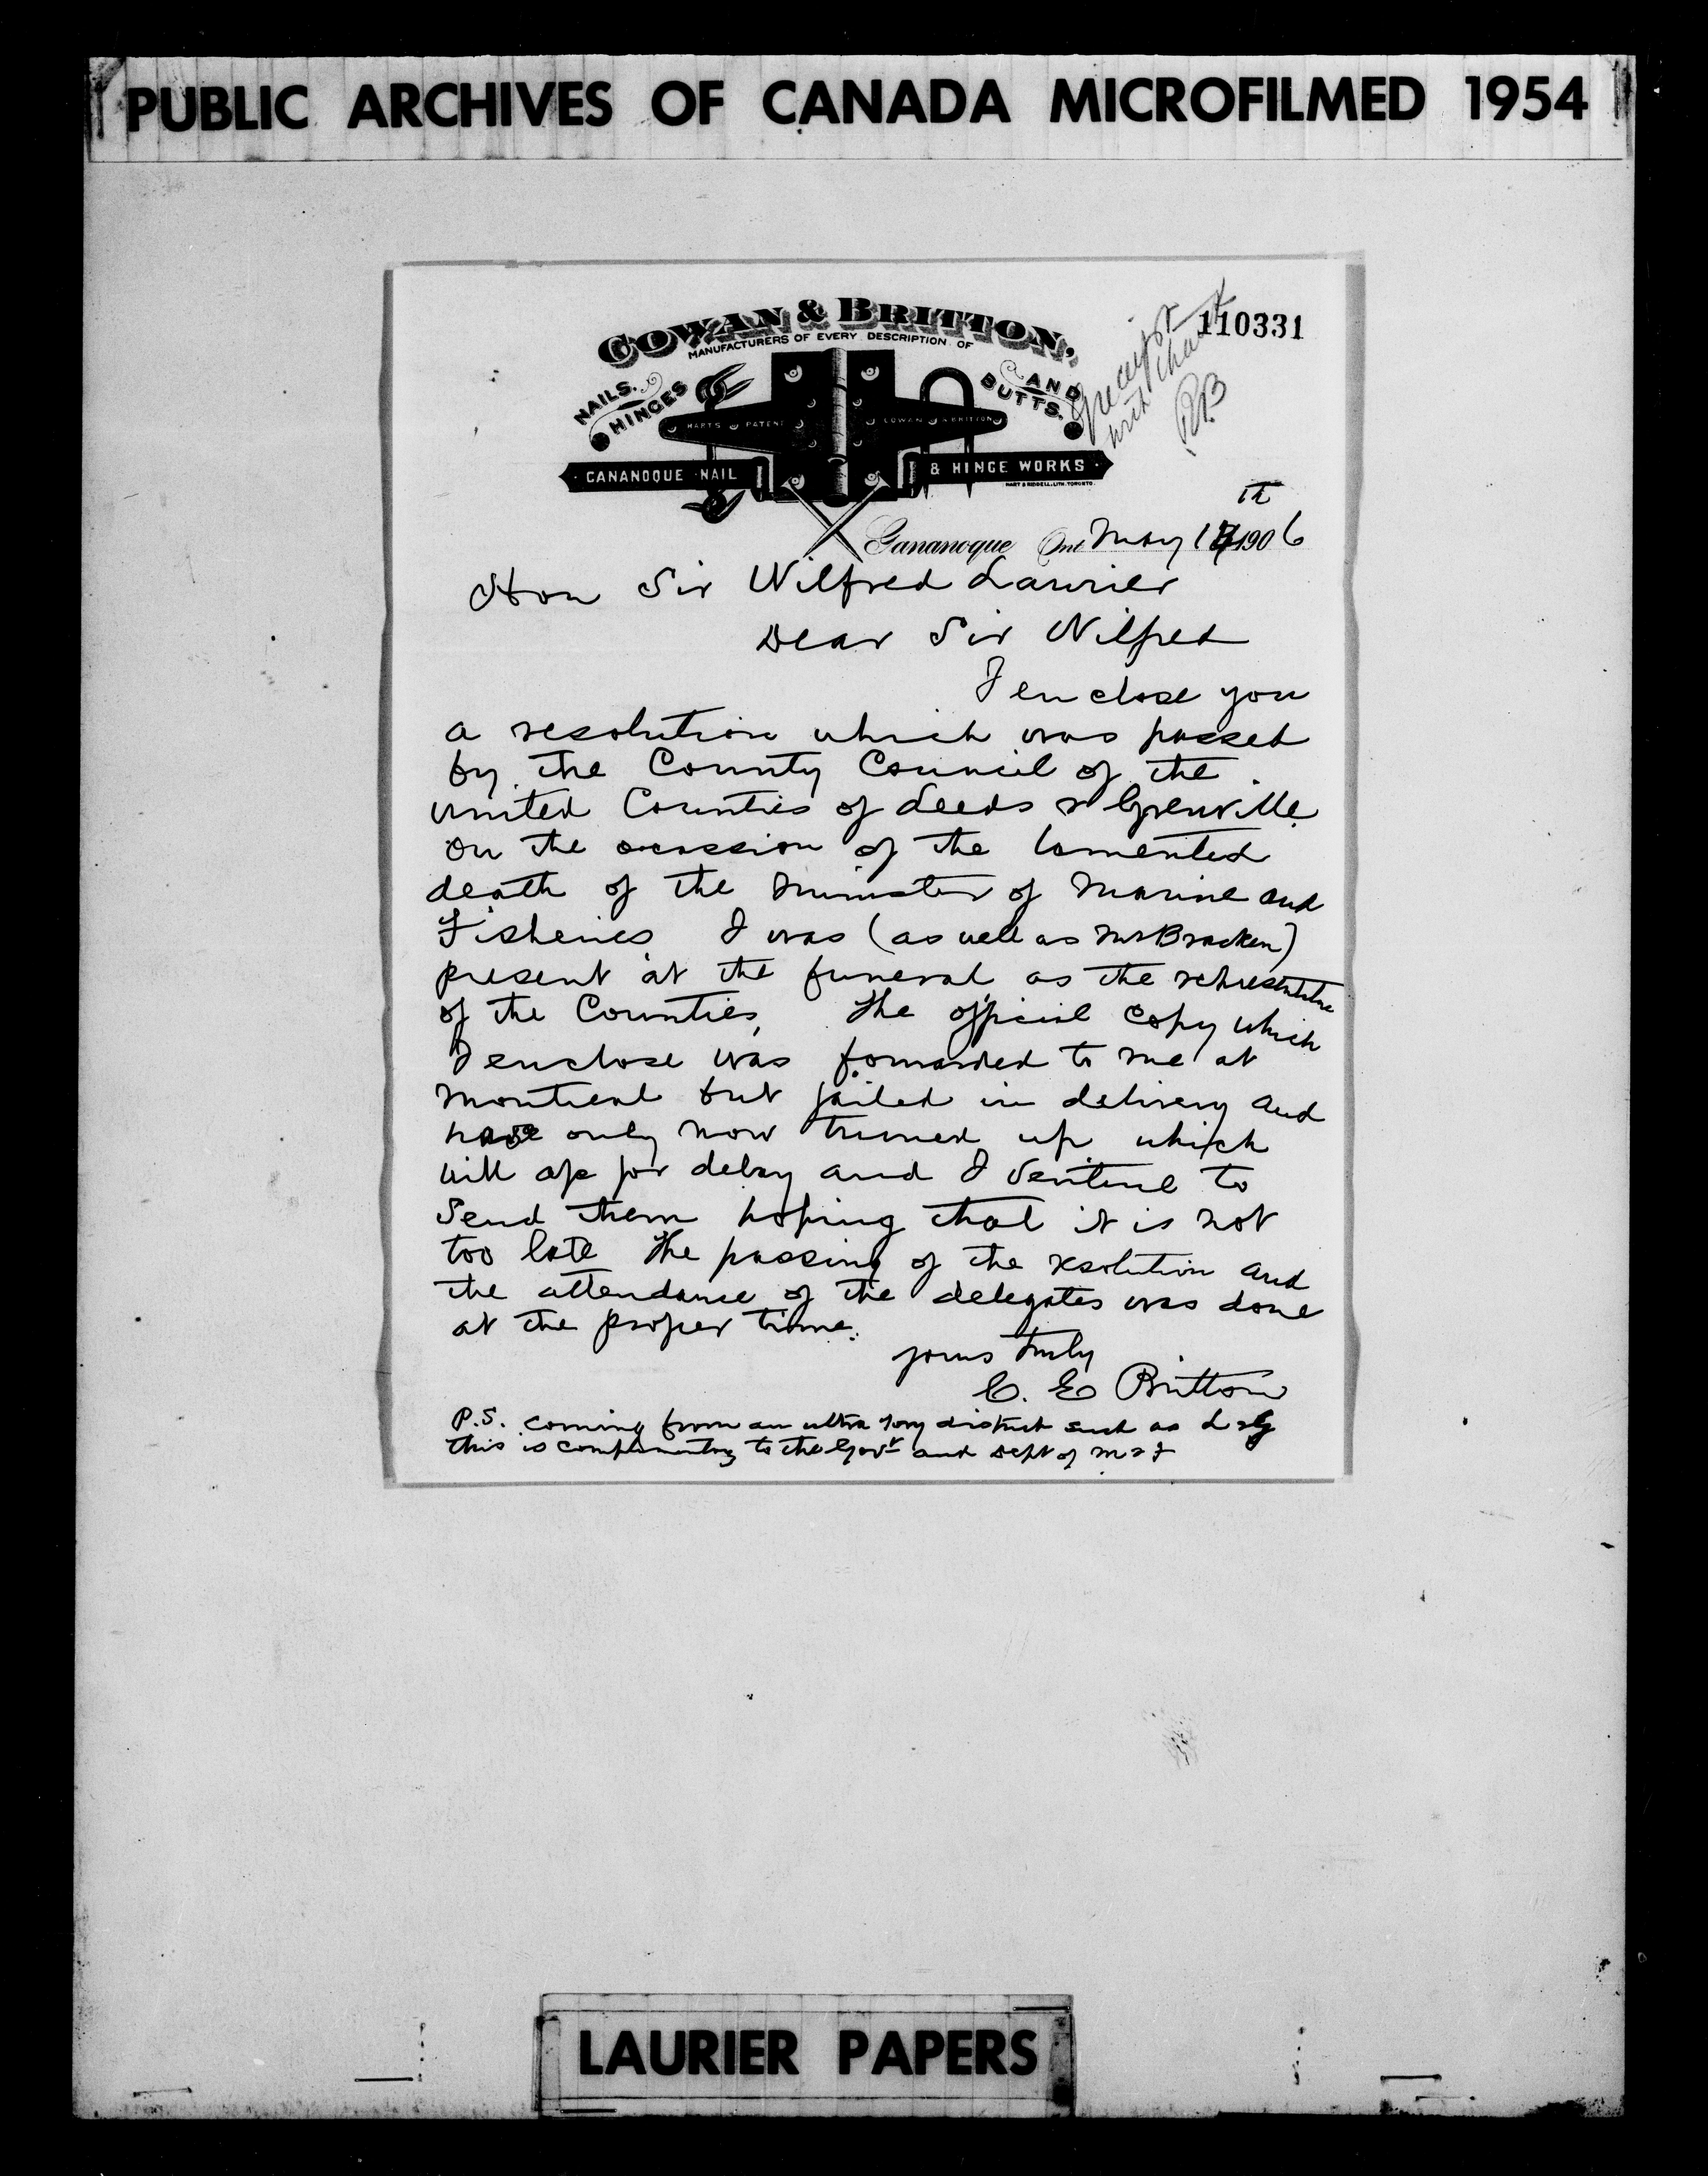 PUBLIC ARCHIVES OF CANADA MICROFILMED 1954
110331
receipt
with thanks
COWAN & BRITTON,
MANUFACTURERS OF EVERY DESCRIPTION OF
NAILS.
HINGES
AND
BUTTS.
HART'S PATENT
COWAN & BRITTON
GANANOQUE NAIL & HINGE WORKS
HART & RIDDELL. LITH. TORONTO.
Gananoque Ont May 17th 1906
Hon Sir Wilfred Laurier
Dear Sir Wilfred
I enclose you
a resolution which was passed
by the County Council of the
United Counties of Leeds & Grenville
on the occassion of the lamented
death of the Minister of Marine and
Fisheries I was (as well as Mr Bracken)
present at the funeral as the representative
of the Counties, The official copy which
I enclose was forwarded to me at
Montreal but failed in delivery and
have only now turned up which
will for delay and I venture to
Send them hoping that it is not
too late The passing of the resolution and
the attendance of the delegates was done
at the proper time.
yours truly
C. E Britton
P.S. coming from an ultra Tory district such as L & G
this is complimentary to the Govt and Dept of M & F
LAURIER PAPERS